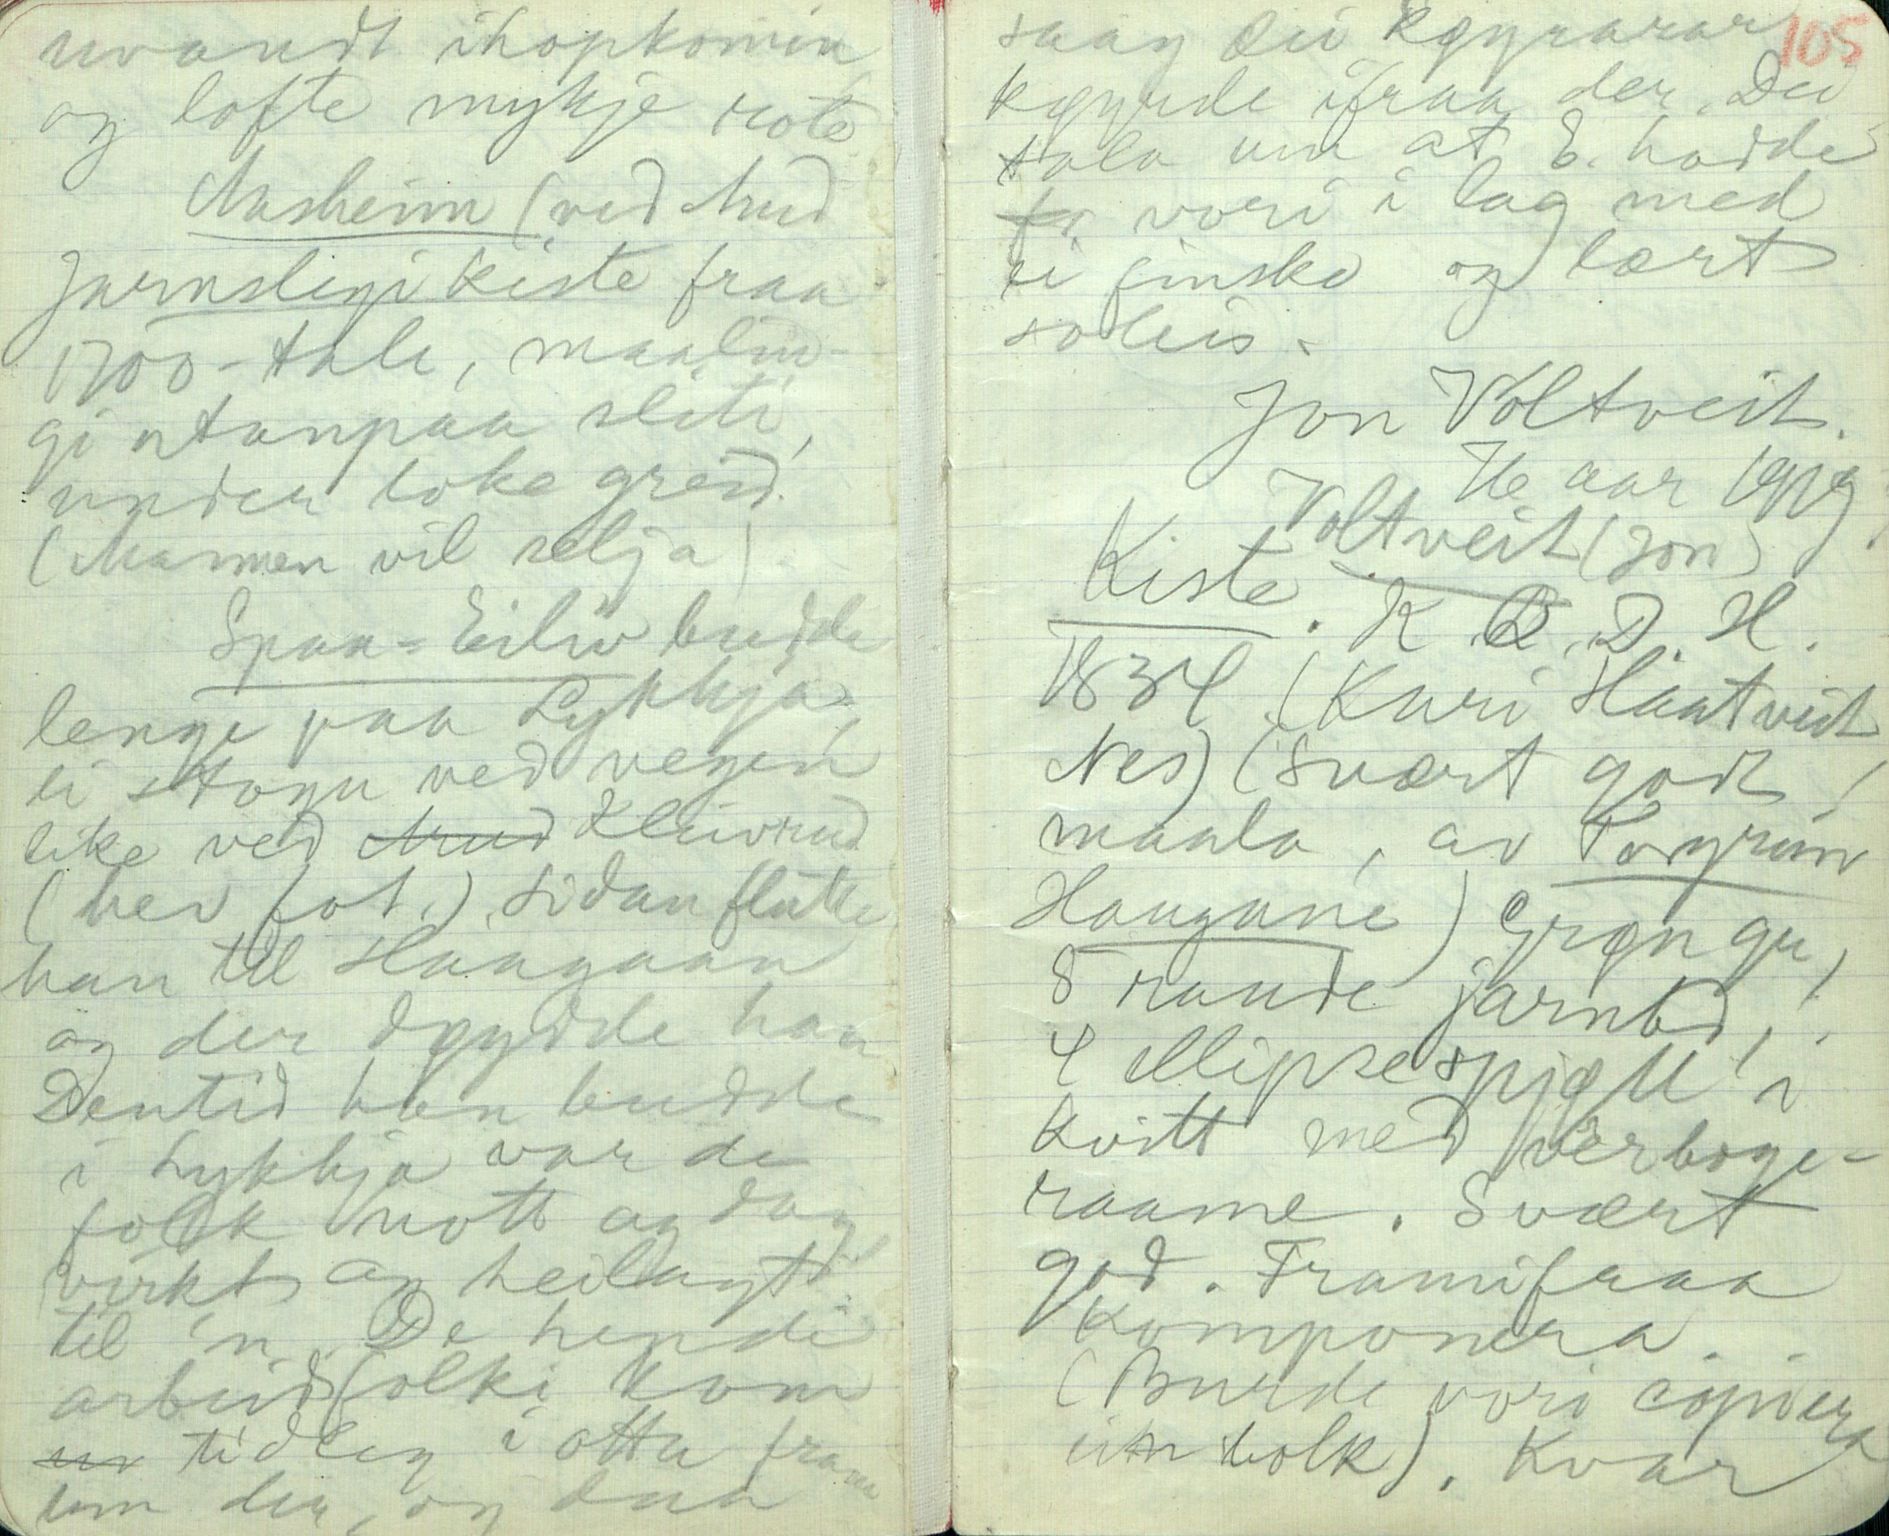 uvandt ihopkomin
og lofte mykje rote
Aasheim (ved Aud
Jarnslegi kiste fraa
1700-tale, maalin-
gi utanpaa sliti,
under loke greid.
(Mannen vil selja)
Spaa-Eiliv budde
lengi paa Lykkja,
ei stogu ved vegen
like ved Kleivrud
(hev fot.) Sidan flutte
han til Haagaan
og der døydde han
Dentid han budde
i Lykkja var de
folk nott og dag
virkt og heilagt
til 'n. De hende
arbeidsfolki kom
tidleg i otta fram
um der, og daa
105
saag dei køyrarar
køyrde ifraa der. Dei
tala um at E. hadde
vori i lag med
ei finske og lært
soleis.
Jon Voltveit.
76 aar 1919.
Voltveit (Jon)
Kiste. K. B. D. H.
1834 (Kari Haatveit
Nes) (Svært godt
maala, av Torgrim
Haugane) Grøn gr,
8 raude jarnbd,
4 ellipsespjøll i
kvitt med verboge-
raame. Svært
god. Framifraa
komponera.
(Burde vori copiera
ein bolk). Kvar